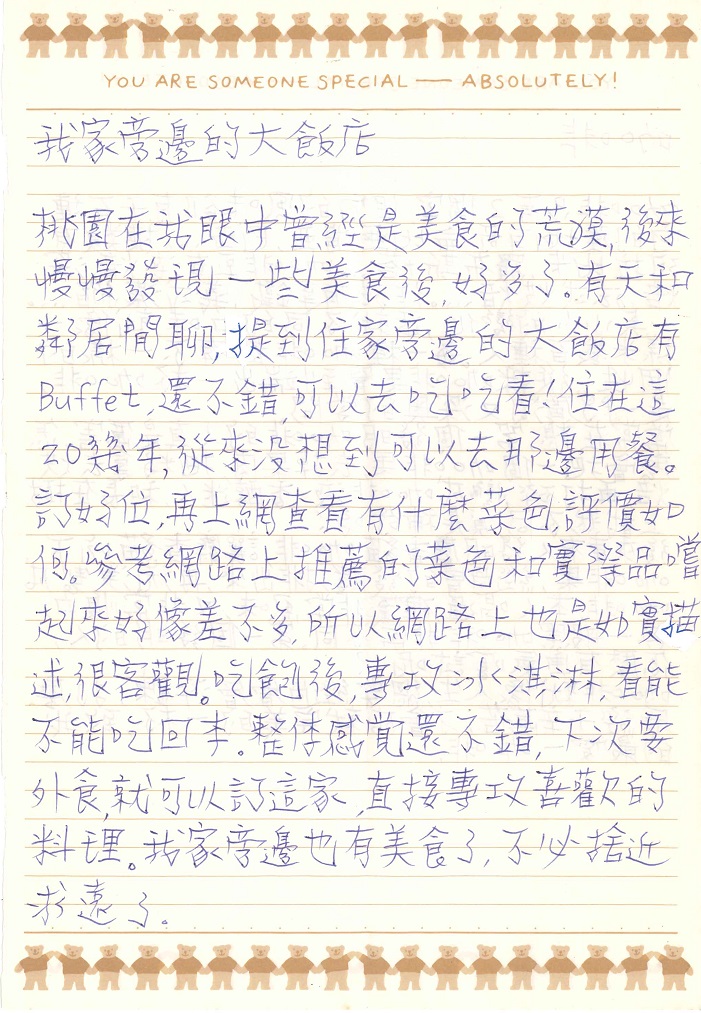 YOU ARE SOMEONE SPECIAL — ABSOLUTELY!
我家旁邊的大飯店
桃園在我眼中曾經是美食的荒漠,後來
慢慢發現一些美食後,好多了。有天和
鄰居閒聊,提到住家旁邊的大飯店有
Buffet,還不錯,可以去吃吃看!住在這
20幾年,從來沒想到可以去那邊用餐。
訂好位,再上網查看有什麼菜色,評價如
何。參考網路上推薦的菜色和實際品嚐
起來好像差不多,所以網路上也是如實描
述,很客觀。吃飽後,專攻冰淇淋,看能
不能吃回本。整体感覚還不錯,下次要
外食,就可以訂這家,直接專攻喜歡的
料理。我家旁邊也有美食了,不必捨近
求遠了。